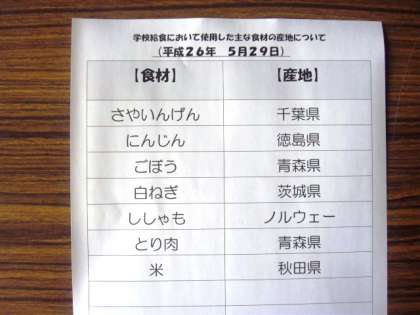 学校給食において使用した主な食材の産地について
（平成２６年　５月２９日）
【食材】 【産地】
さやいんげん 千葉県
にんじん 徳島県
ごぼう 青森県
白ねぎ 茨城県
ししゃも ノルウェー
とり肉 青森県
米 秋田県